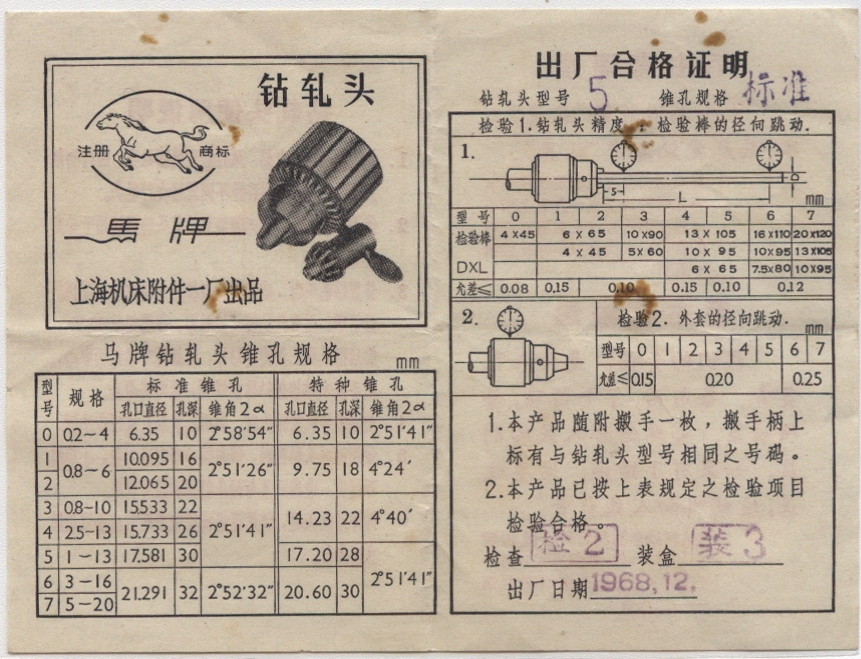 钻轧头
注册 商标
馬牌
上海机床附件一厂出品
马牌钻轧头锥孔规格 mm
型号 规格 标准锥孔 特种锥孔
孔口直径 孔深 锥角2α 孔口直径 孔深 锥角2α
0 0.2~4 6.35 10 2°58'54" 6.35 10 2°51'41"
1 0.8~6 10.095 16 2°51'26" 9.75 18 4°24'
2 12.065 20
3 0.8-10 15.533 22 2°51'41" 14.23 22 4°40'
4 2.5-13 15.733 26
5 1~13 17.581 30 17.20 28 2°51'41"
6 3~16 21.291 32 2°52'32" 20.60 30
7 5~20
出厂合格证明
钻轧头型号 5 锥孔规格 标准
检验1.钻轧头精度：检验棒的径向跳动.
1.
5 L D mm
型号 0 1 2 3 4 5 6 7
检验棒 4×45 6×65 10×90 13×105 16×110 20×120
DXL 4×45 5×60 10×95 10×95 13×105
6×65 7.5×80 10×95
允差≤ 0.08 0.15 0.10 0.15 0.10 0.12
2. 检验2.外套的径向跳动. mm
型号 0 1 2 3 4 5 6 7
允差≤ 0.15 0.20 0.25
1.本产品随附搬手一枚，搬手柄上
标有与钻轧头型号相同之号码。
2.本产品已按上表规定之检验项目
检验合格。
检查 检2 装盒 装3
出厂日期 1968.12.